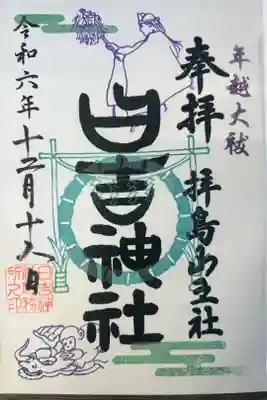 年越大祓
奉拝 拝島山王社
日吉神社
令和六年十二月十八日
日吉神
所之印